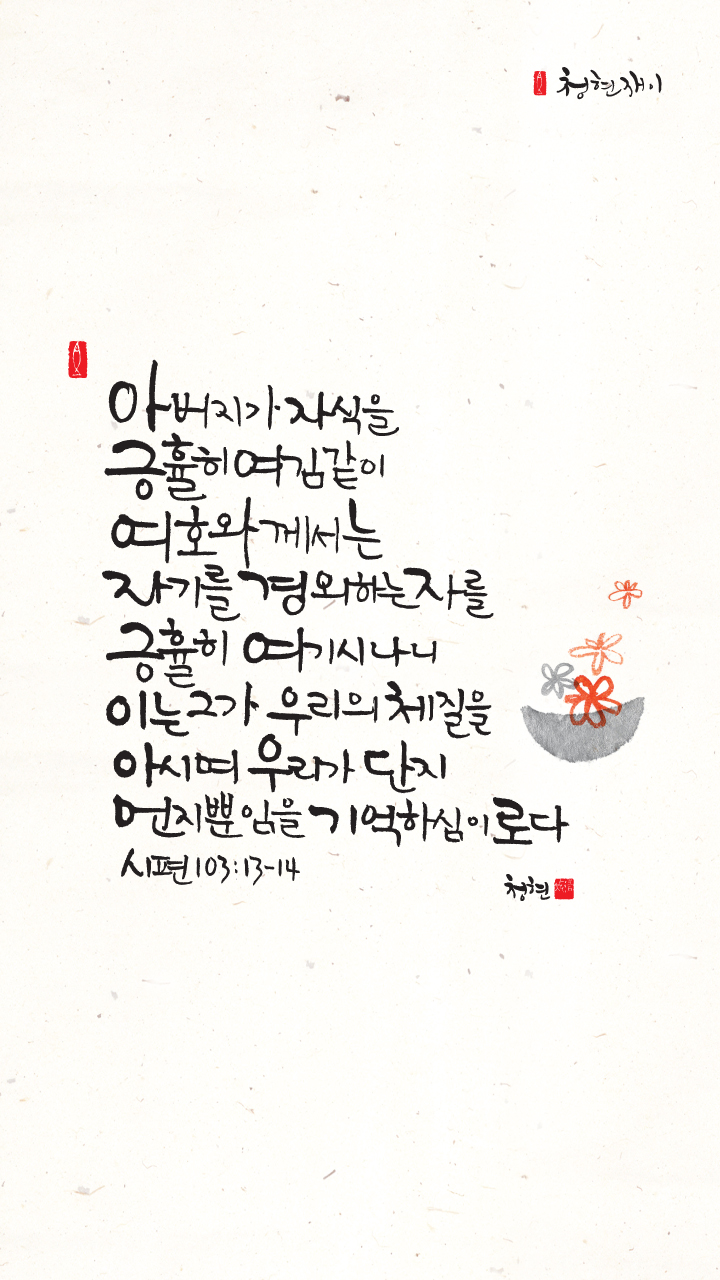 청현재이
아버지가 자식을
긍휼히 여김같이
여호와께서는
자기를 경외하는 자를
긍휼히 여기시나니
이는 그가 우리의 체질을
아시며 우리가 단지
먼지뿐임을 기억하심이로다
시편 103:13-14
청현